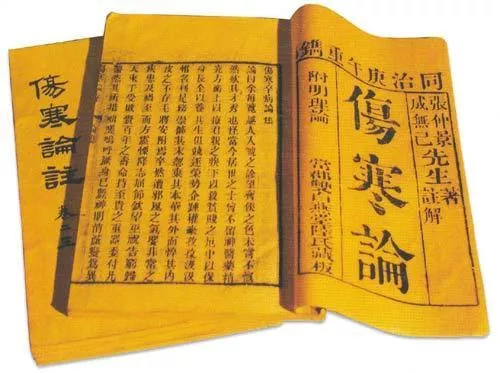 同治庚午年重鐫
張仲景
成無己
先生
著
註解
傷寒論
附明理論
常郡雙白燕堂陸氏藏板
傷寒卒病論集
論曰余每覽越人入虢之診望齊侯之色未嘗不慨
然歎其才秀也怪當今居世之士曾不留神醫藥精
究方術上以療君親之疾下以救貧賤之厄中以保
身長全以養其生但競逐榮勢企踵權豪孜孜汲汲
惟名利是務崇飾其末忽棄其本華其外而悴其內
皮之不存毛將安附焉卒然遭邪風之氣嬰非常之
疾患及禍至而方震慄降志屈節欽望巫祝告窮歸
天束手受敗賫百年之壽命持至貴之重器委付凡
醫恣其所措咄嗟嗚呼厥身已斃神明消滅變為異
傷寒論註